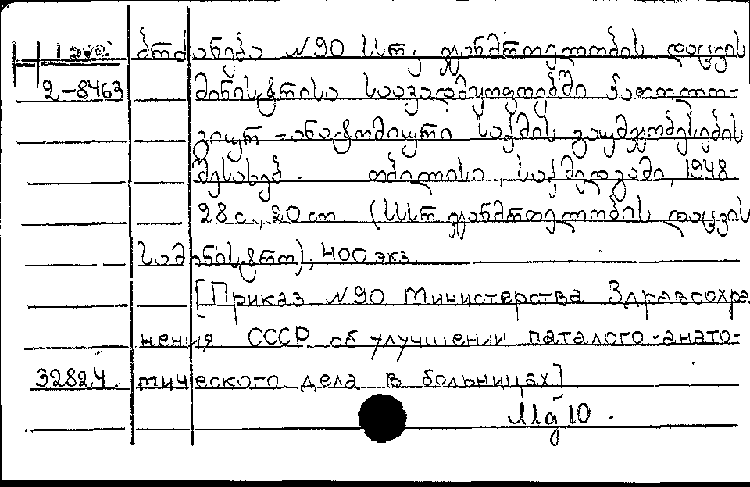 ბრძანება №90 სსრკ ჯანმრთელობის დაცვის
2-8463 მინისტრისა საავადმყოფოებში პათოლო-
გიურ-ანატომიური საქმის გაუმჯობესების
შესახებ. თბილისი, საქმედგამი, 1948
28 с., 20 cm (სსრ ჯანმრთელობის დაცვის
სამინისტრო), 400 экз.
[Приказ №90 Министерства Здравоохра-
нения СССР об улучшении паталого-анато-
32824 мического дела в больницах]